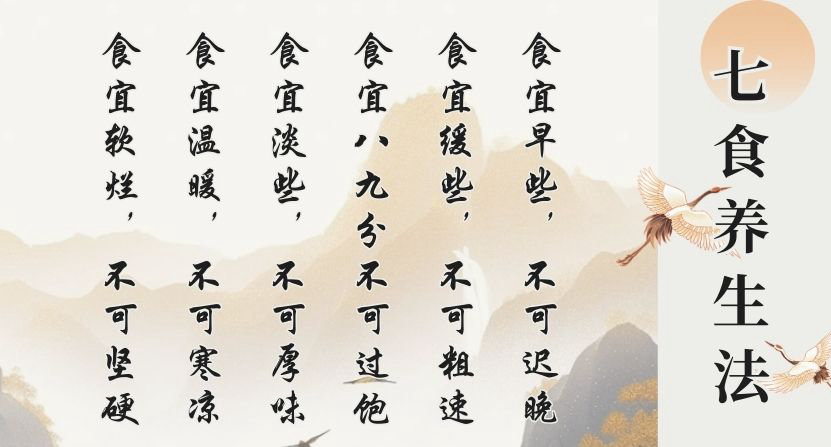 七食养生法
食宜早些，不可迟晚
食宜缓些，不可粗速
食宜八九分不可过饱
食宜淡些，不可厚味
食宜温暖，不可寒凉
食宜软烂，不可坚硬